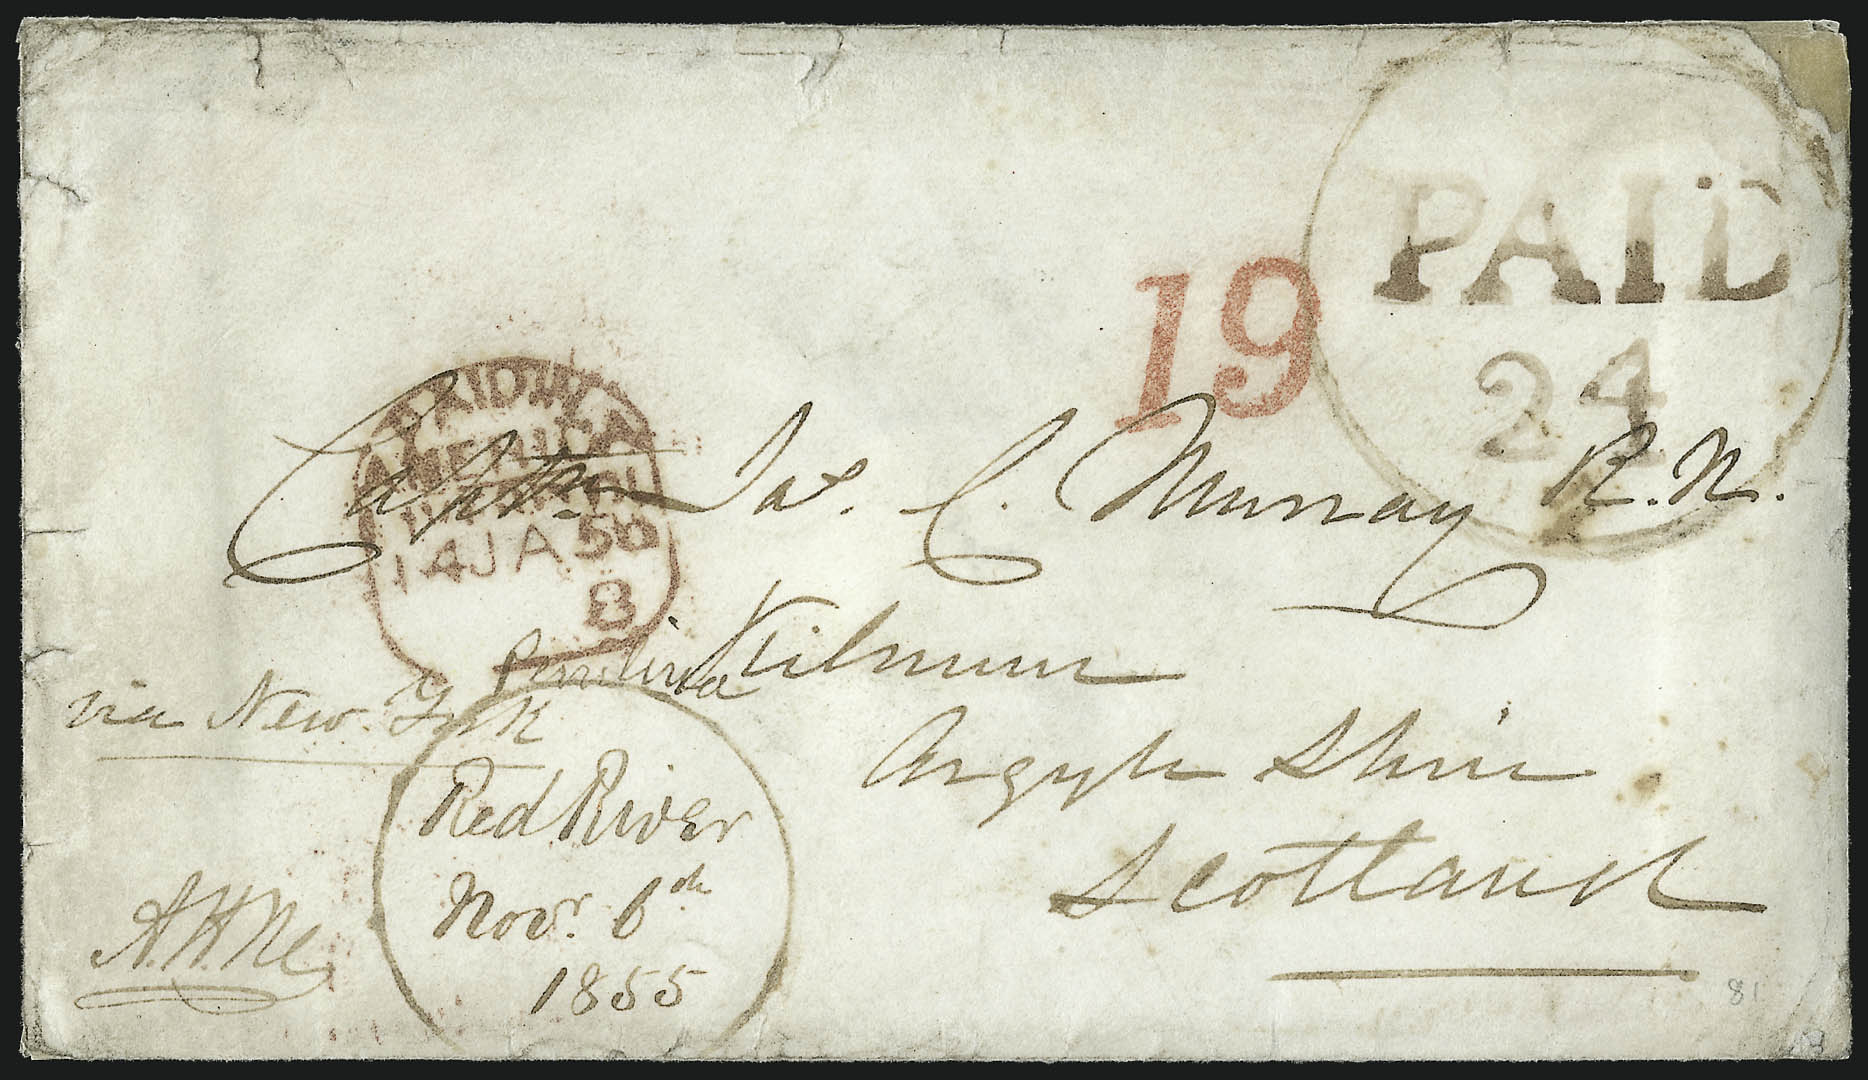 PAID
24
19
PAID
AMERICA
14 JA 56
8
Captn. Jas. C. Murray R.N.
Kilmun
via New York
Argyle Shire
Red River
Novr. 6th
1855
Scotland
81